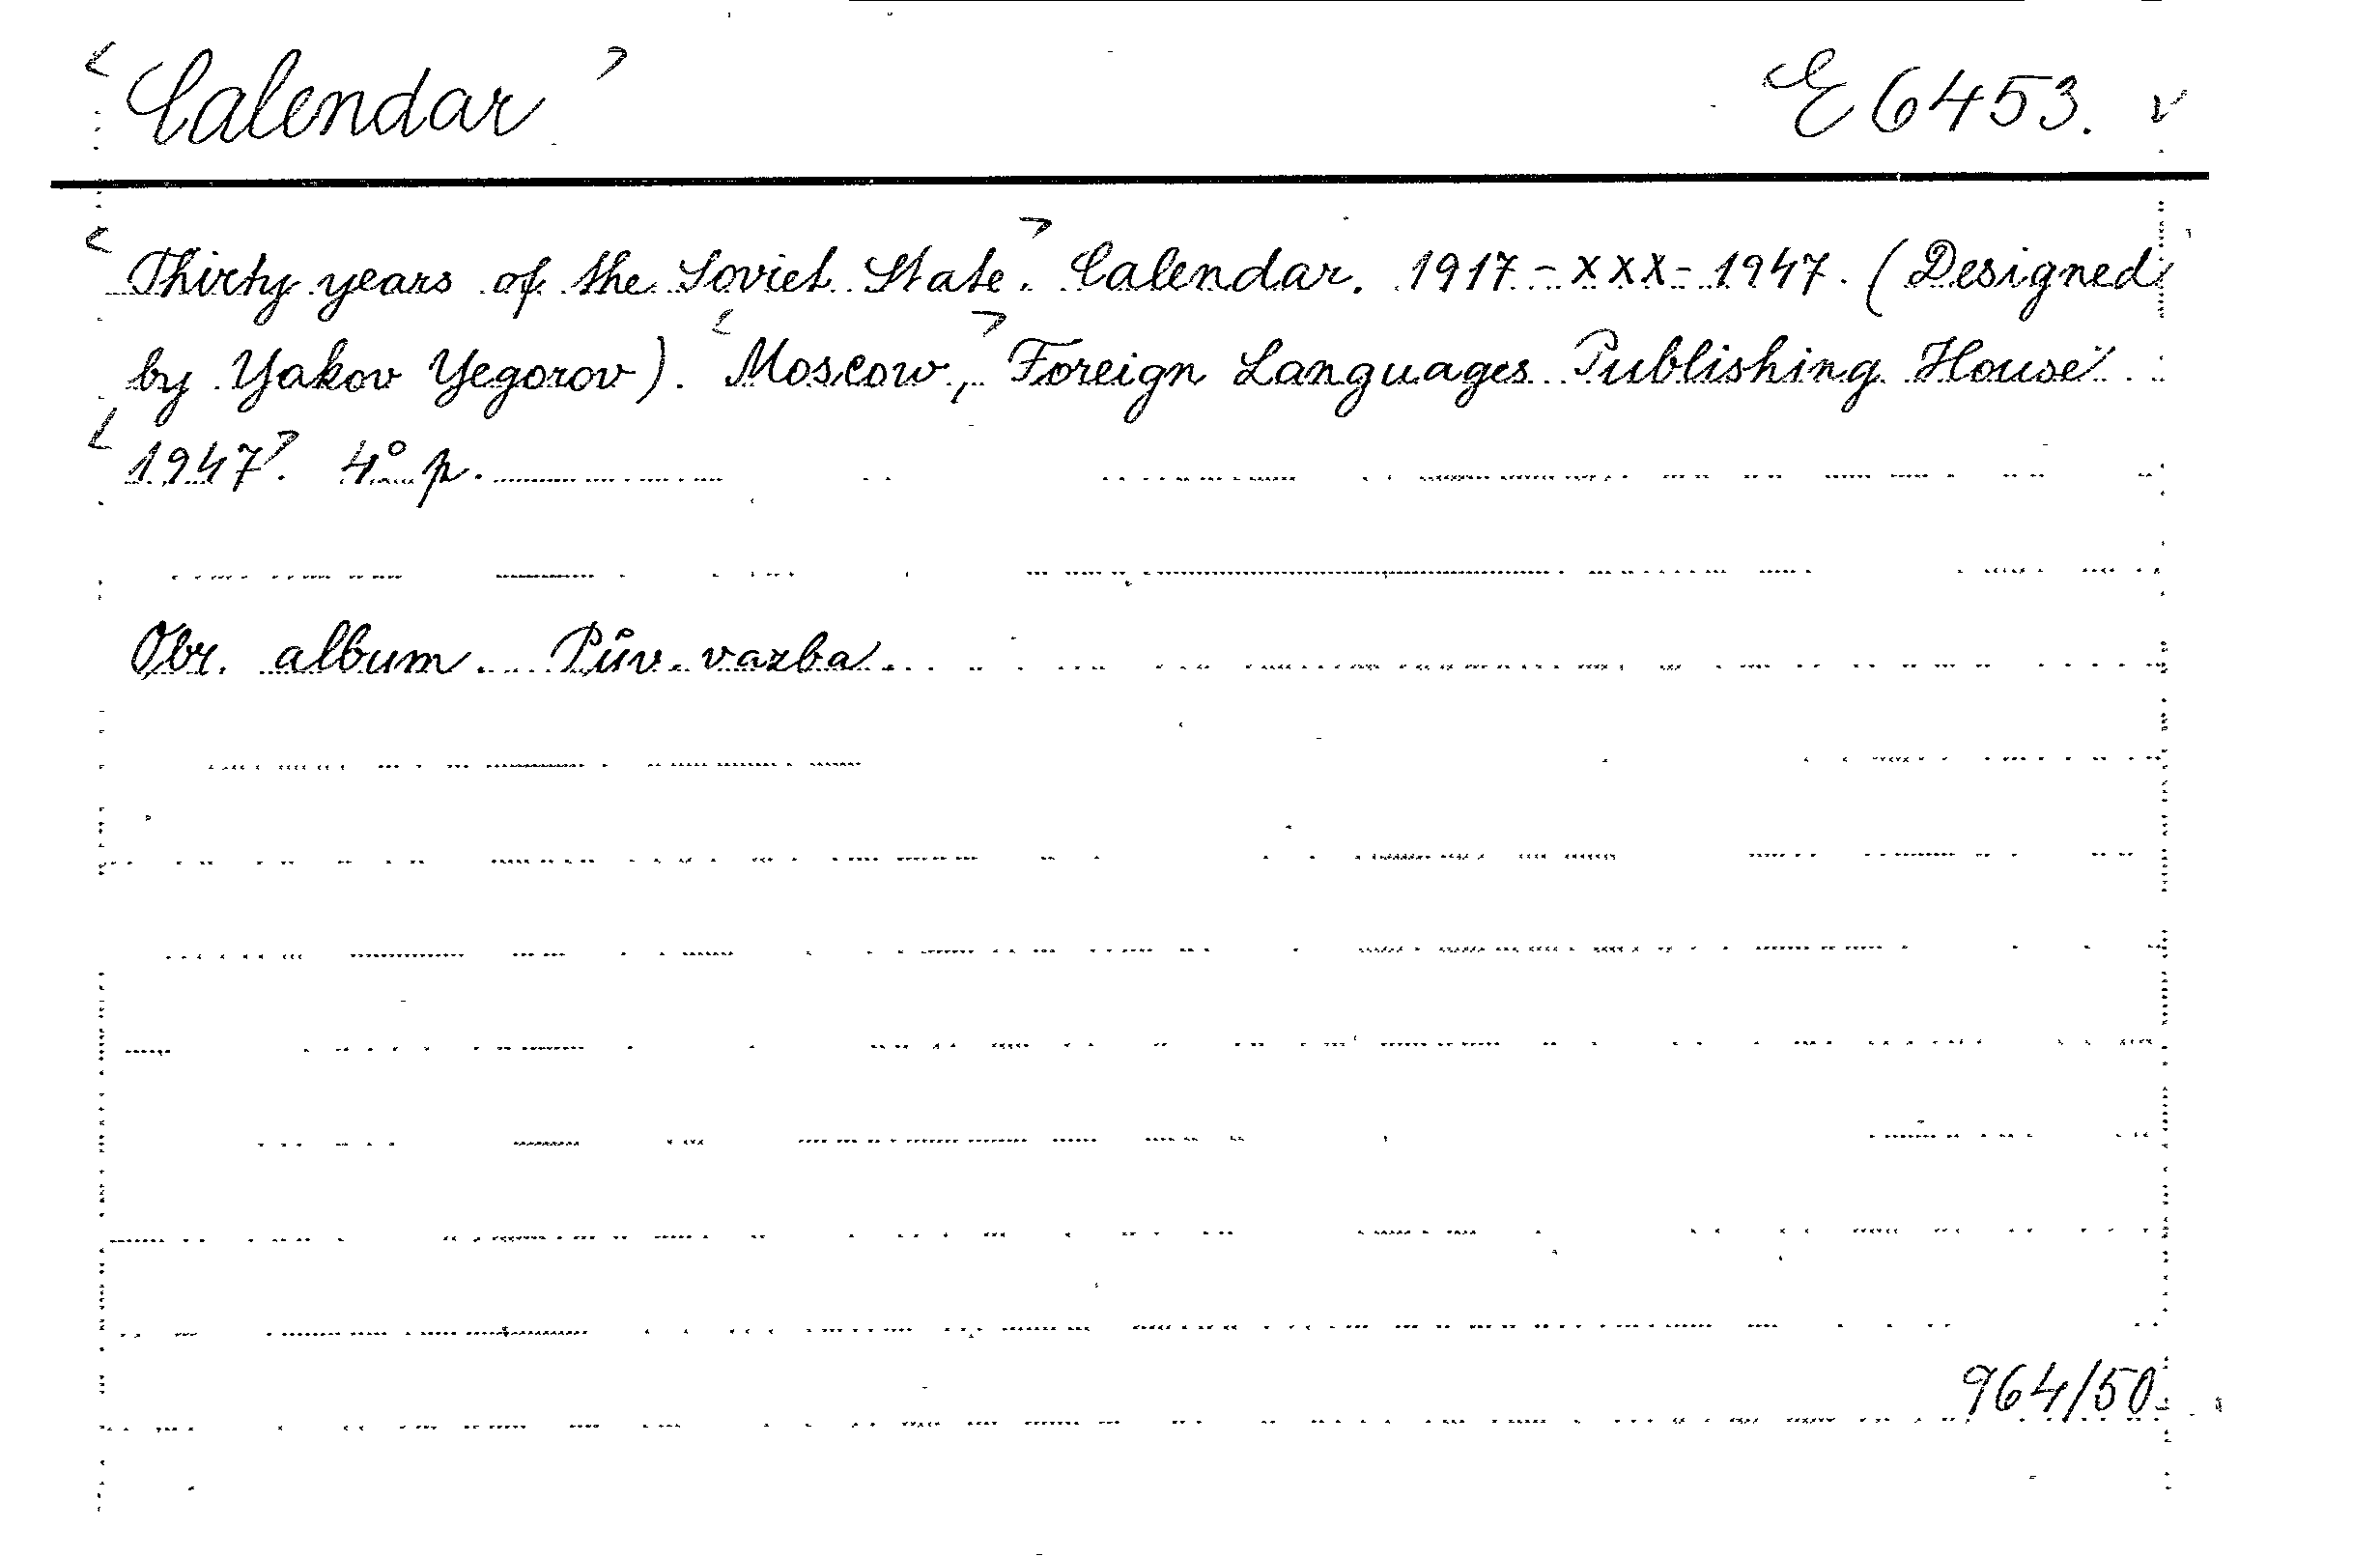 Calendar E 6453.
Thirty years of the Soviet State. Calendar. 1917 - XXX - 1947. (Designed
by Yakov Yegorov). Moscow, Foreign Languages Publishing House
1947. 4° p.
Obr. album. Pův. vazba.
964/50